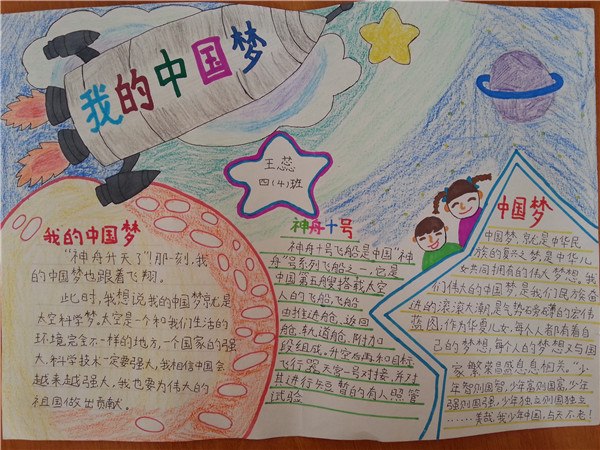 我的中国梦
王蕊
四(4)班
我的中国梦
"神舟升天了"!那一刻,我
的中国梦也跟着飞翔。
此时,我想说我的中国梦就是
太空科学梦。太空是一个和我们生活的
环境完全不一样的地方,一个国家的强
大,科学技术一定要强大,我相信中国会
越来越强大,我也要为伟大的
祖国做出贡献。
神舟十号
神舟十号飞船是中国"神
舟"号系列飞船之一,它是
中国第五艘搭载太空
人的飞船,飞船
由推进舱、返回
舱、轨道舱、附加
段组成。升空后再和目标
飞行器天宫一号对接,并对
其进行短暂的有人照管
试验
中国梦
中国梦,就是中华民
族的复兴之梦,是中华儿
女共同拥有的伟大梦想。我
们伟大的中国梦是我们民族奋
进的滚滚大潮,是气势磅礴的宏伟
蓝图;作为华夏儿女,每个人都有着自
己的梦想,每个人的梦想又与国
家繁荣昌盛息息相关。"少
年智则国智,少年富则国富,少年
强则国强,少年独立则国独立
……美哉,我少年中国,与天不老!